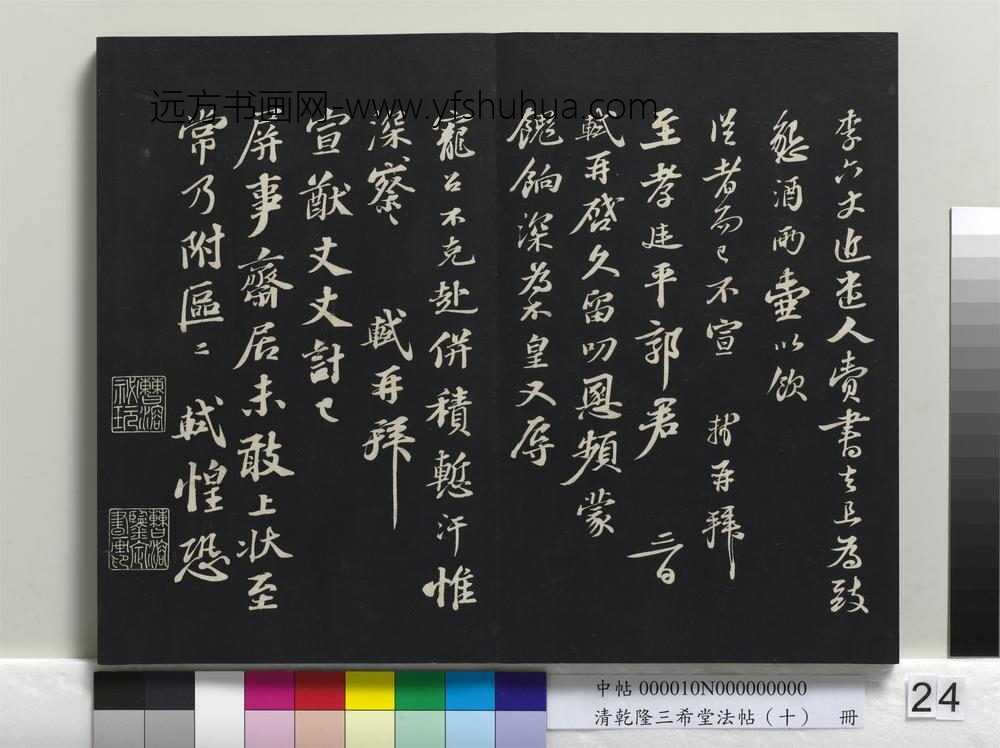 李六丈近遣人賫書去且為致
懇酒兩壷以飲
從者而已不宣 軾再拜
至孝廷平郭君 二日
軾再啓久留叨恩頻蒙
餽餉深為不皇又辱
寵召不克赴併積慙汗惟
深察深察 軾再拜
宣猷丈丈計已
屏事齋居未敢上狀至
常乃附區區 軾惶恐
曹溶
秘玩
曹溶
鑒定
書畫印
远方书画网-www.yfshuhua.com
中帖 000010N000000000
清乾隆三希堂法帖（十） 冊
24